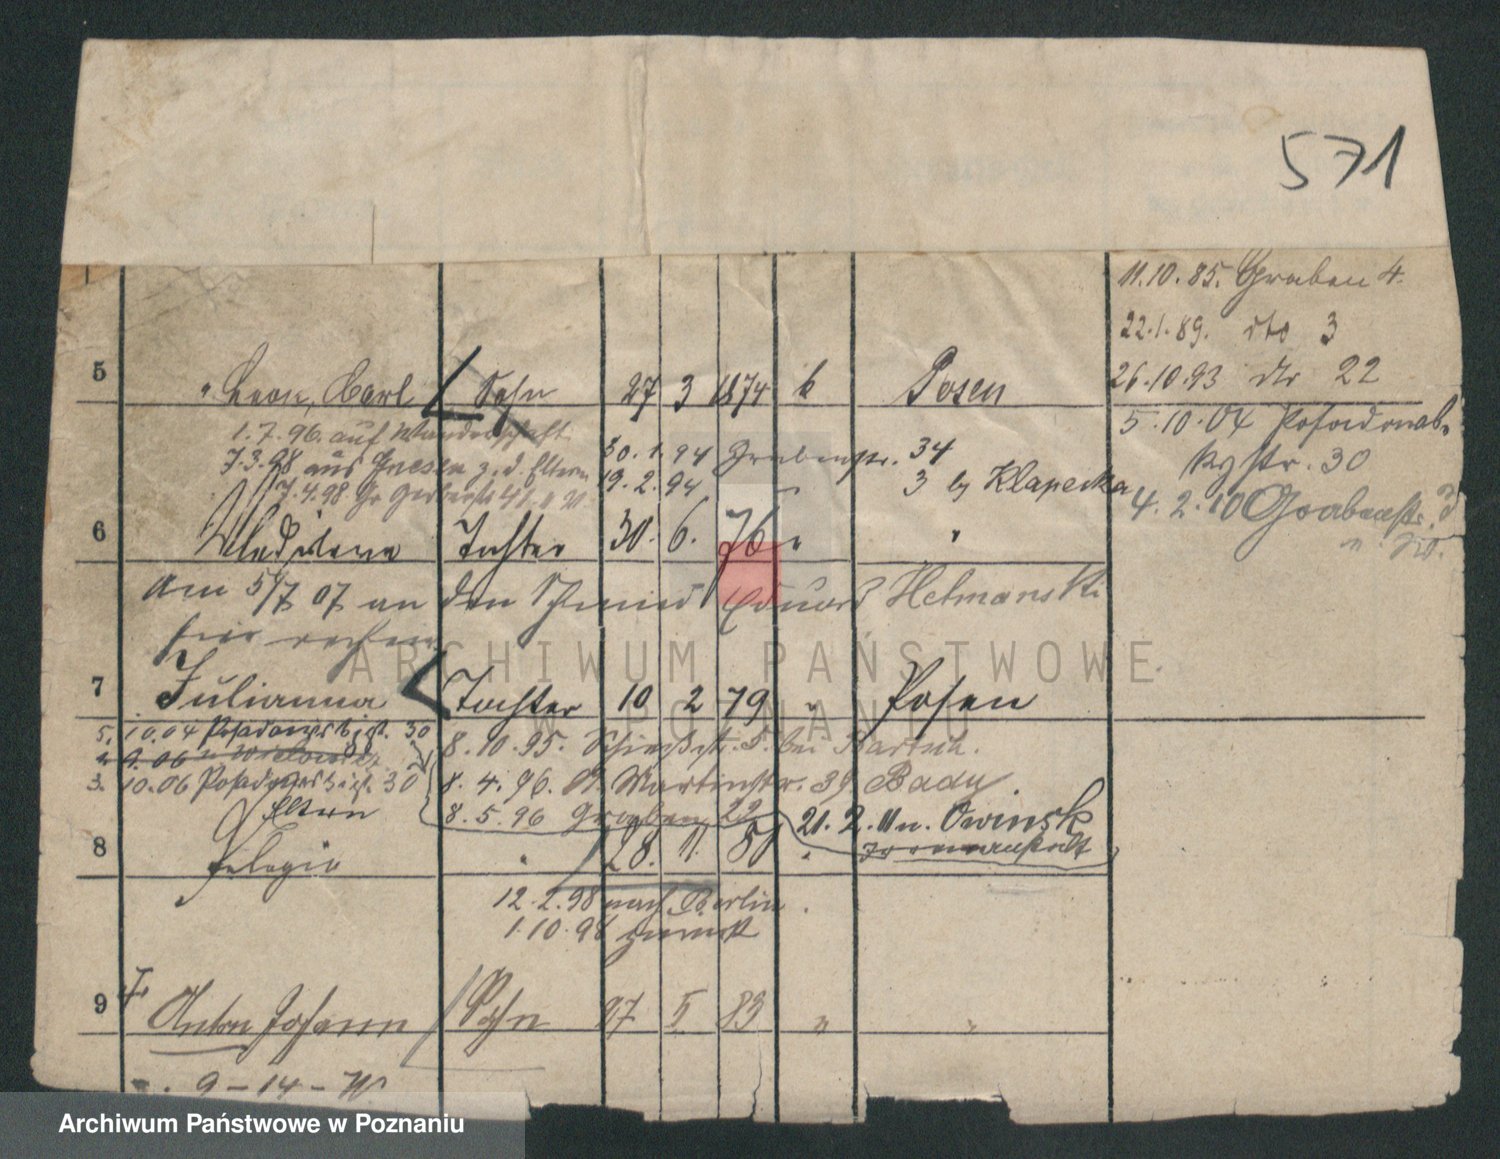 571
11.10.85. Graben 4.
22.1.89. dto 3
26.10.93 dto 22
5 Leon, Carl Sohn 27 3 1874 k Posen
5.10.04 Posadowsky
str. 30
1.7.96. auf Wanderschaft
30.1.94 Grabenstr. 34
7.3.98 aus Gnesen z. d. Eltern
19.2.94 3 by Klapecka
7.4.98 Gr Gerberstr 41
4.2.10 Grabenstr. 3
6 Tochter 30. 6. 76 "
Am 5/7 07 an den Schmied Eduard Helmanski
hier
7 Julianna Tochter 10 2 79 " Posen
5.10.04 Posadowskistr. 30
8.10.95. Schießstr. 5. bei
3.10.06 Posadowskistr. 30
8.4.96. St. Martinstr. 39 Badu
Eltern
8.5.96 Graben 22
21.2.11 n. Owinsk
Irrenanstalt
8 Pelagia " 28. 11. 80 "
12.2.98 nach Berlin.
1.10.98 zurück
9 Anton Johann Sohn 27 5 83 " "
9-14-W
ARCHIWUM PAŃSTWOWE
W POZNANIU
Archiwum Państwowe w Poznaniu